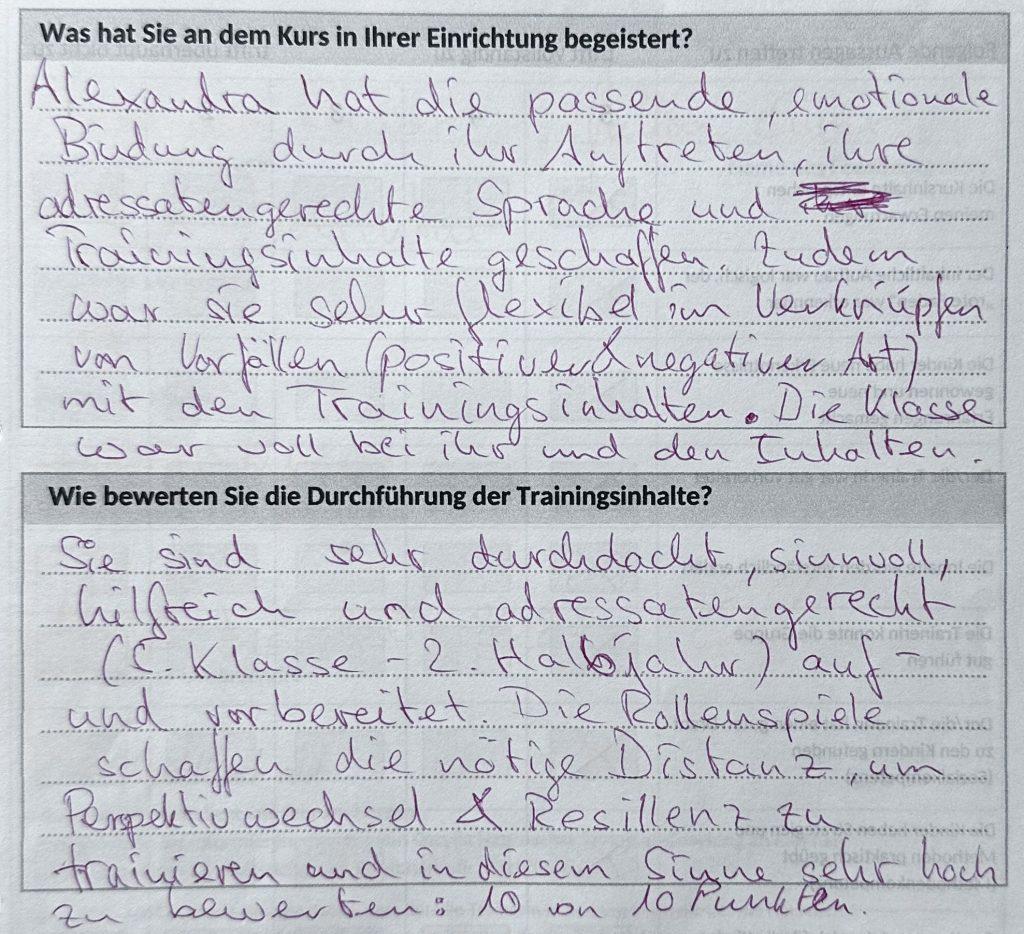 Was hat Sie an dem Kurs in Ihrer Einrichtung begeistert?
Alexandra hat die passende, emotionale
Bindung durch ihr Auftreten, ihre
adressatengerechte Sprache und
Trainingsinhalte geschaffen. Zudem
war sie sehr flexibel im Verknüpfen
von Vorfällen (positiver & negativer Art)
mit den Trainingsinhalten. Die Klasse
war voll bei ihr und den Inhalten.
Wie bewerten Sie die Durchführung der Trainingsinhalte?
Sie sind sehr durchdacht, sinnvoll,
hilfreich und adressatengerecht
(5. Klasse - 2. Halbjahr) auf-
und vorbereitet. Die Rollenspiele
schaffen die nötige Distanz, um
Perspektivwechsel & Resillenz zu
trainieren und in diesem Sinne sehr hoch
zu bewerten: 10 von 10 Punkten.